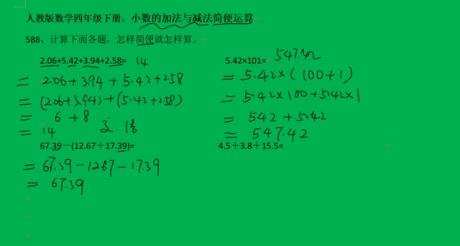 人教版数学四年级下册，小数的加法与减法简便运算
588、计算下面各题，怎样简便就怎样算。
2.06+5.42+3.94+2.58= 14
= 2.06+3.94+5.42+2.58
= (2.06+3.94)+(5.42+2.58)
= 6+8
= 14
5.42×101= 547.42
= 5.42×(100+1)
= 5.42×100+5.42×1
= 542+5.42
= 547.42
67.39−(12.67+17.39)=
= 67.39−12.67−17.39
= 67.39
4.5+3.8+15.5=